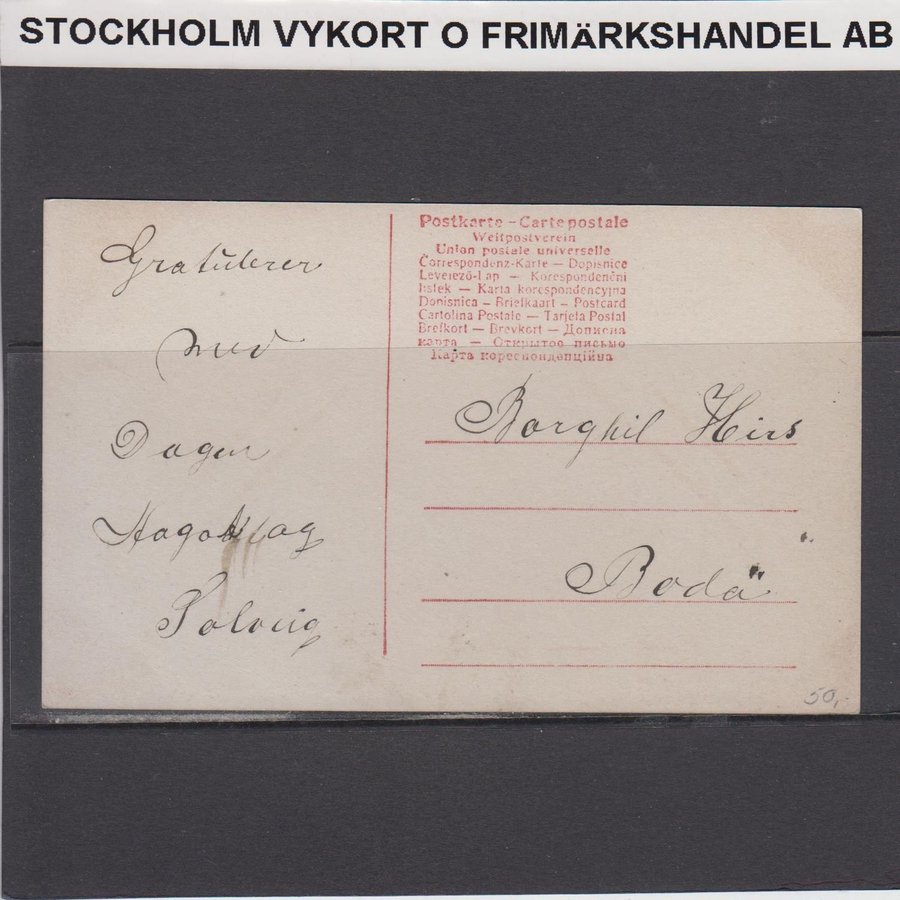 STOCKHOLM VYKORT O FRIMÄRKSHANDEL AB
Postkarte – Carte postale
Weltpostverein
Union postale universelle
Correspondenz-Karte — Dopisnice
Levelező-Lap — Korespondenční
lístek — Karta korespondencyjna
Dopisnica — Briefkaart — Postcard
Cartolina Postale — Tarjeta Postal
Brefkort — Brevkort — Дописна
карта — Открытое письмо
Карта кореспонденційна
Gratulerer
med
Dagen
Solveig
Borghil Hirs
Bodä
50,-